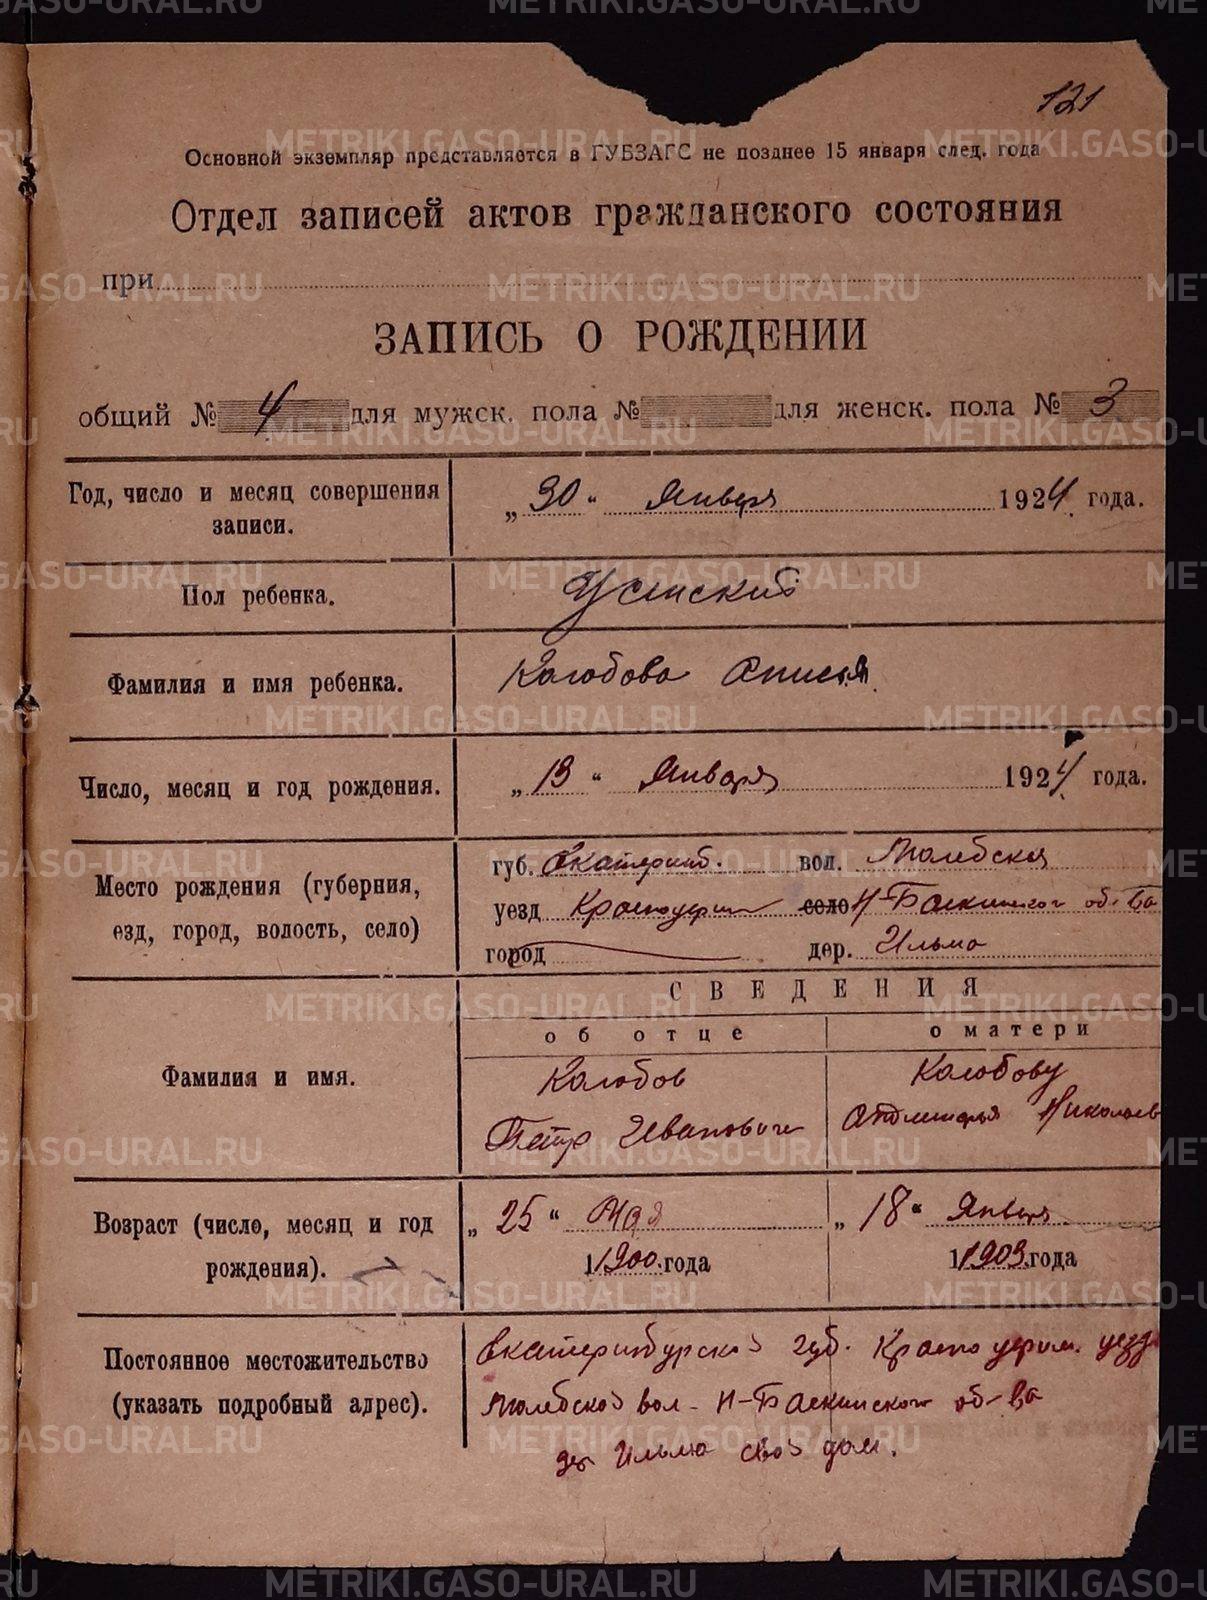 121
Основной экземпляр представляется в ГУБЗАГС не позднее 15 января след. года
Отдел записей актов гражданского состояния
при
ЗАПИСЬ О РОЖДЕНИИ
общий № 4 для мужск. пола № для женск. пола № 3
Год, число и месяц совершения записи.
„30“ Января 1924 года.
Пол ребенка.
Женский
Фамилия и имя ребенка.
Колобова Анисья
Число, месяц и год рождения.
„13“ Января 1924 года.
Место рождения (губерния,
езд, город, волость, село)
губ. Екатеринб. вол. Молебская
уезд Красноуфим село Н-Баскинского об-ва
город дер. Ильма
СВЕДЕНИЯ
об отце
о матери
Фамилия и имя.
Колобов
Петр Иванович
Колобову
Николаев
Возраст (число, месяц и год
рождения).
„25“ Мая
1900 года
„18“ Январ
1903 года
Постоянное местожительство
(указать подробный адрес).
Екатеринбургской губ. Красноуфим. уезд
Молебской вол. Н-Баскинского об-ва
дер Ильма свой дом.
METRIKI.GASO-URAL.RU